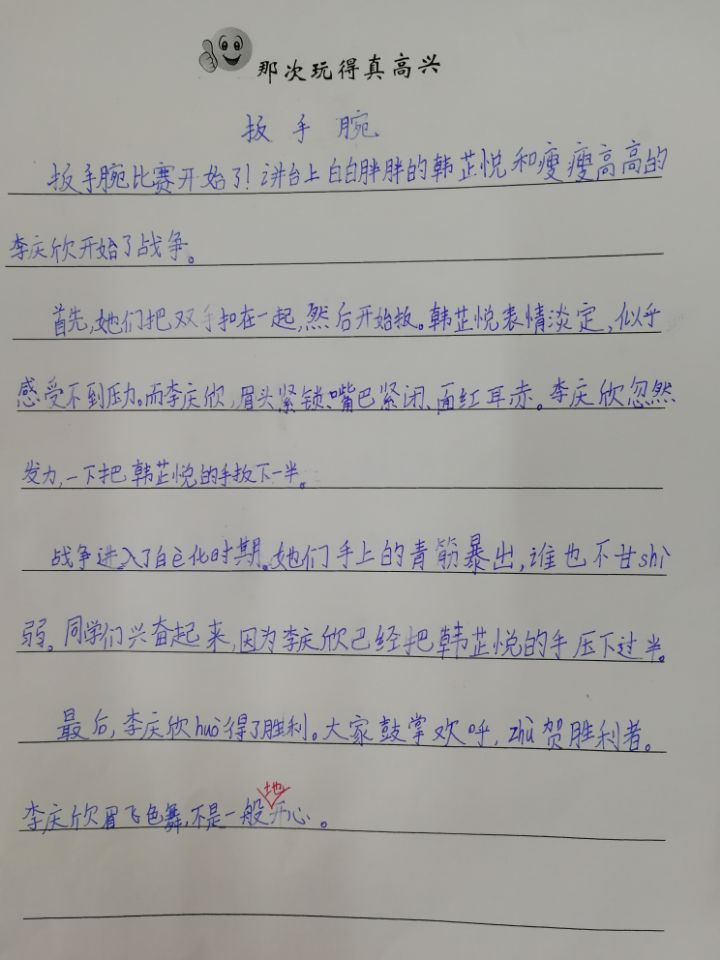 那次玩得真高兴
扳手腕
扳手腕比赛开始了！讲台上白白胖胖的韩芷悦和瘦瘦高高的
李庆欣开始了战争。
首先，她们把双手扣在一起，然后开始扳。韩芷悦表情淡定，似乎
感受不到压力。而李庆欣，眉头紧锁、嘴巴紧闭、面红耳赤。李庆欣忽然
发力，一下把韩芷悦的手扳下一半。
战争进入了白色化时期。她们手上的青筋暴出，谁也不甘shì
弱。同学们兴奋起来，因为李庆欣已经把韩芷悦的手压下过半。
最后，李庆欣huò得了胜利。大家鼓掌欢呼，zhù贺胜利者。
李庆欣眉飞色舞，不是一般地开心。